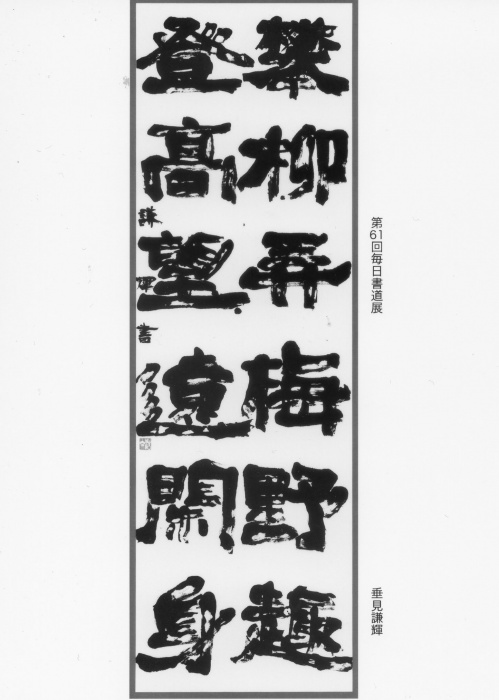 攀柳弄梅野趣
登高望遠閑身
謙輝書
第61回毎日書道展
垂見謙輝